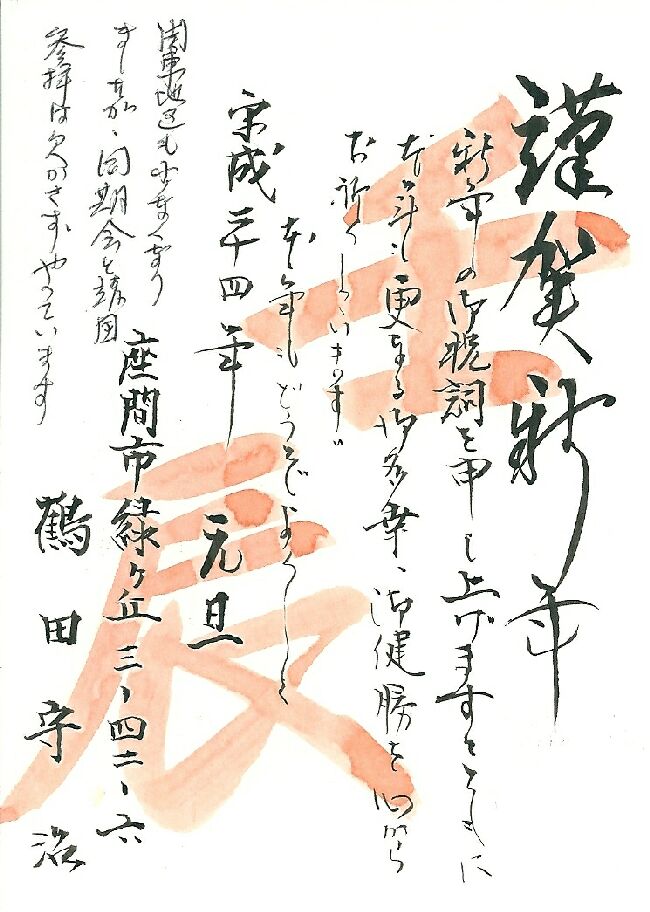 謹賀新年
新年の御祝詞を申し上げますとともに
本年も更なる御多幸、御健勝を心から
お祈りしています
本年もどうぞよろしく
平成二十四年
元旦
壬辰
座間市緑ヶ丘三ー四二ー六
鶴田守治
関東地区も少なくなり
ましたが、同期会と靖国
参拝は欠かさずやっています